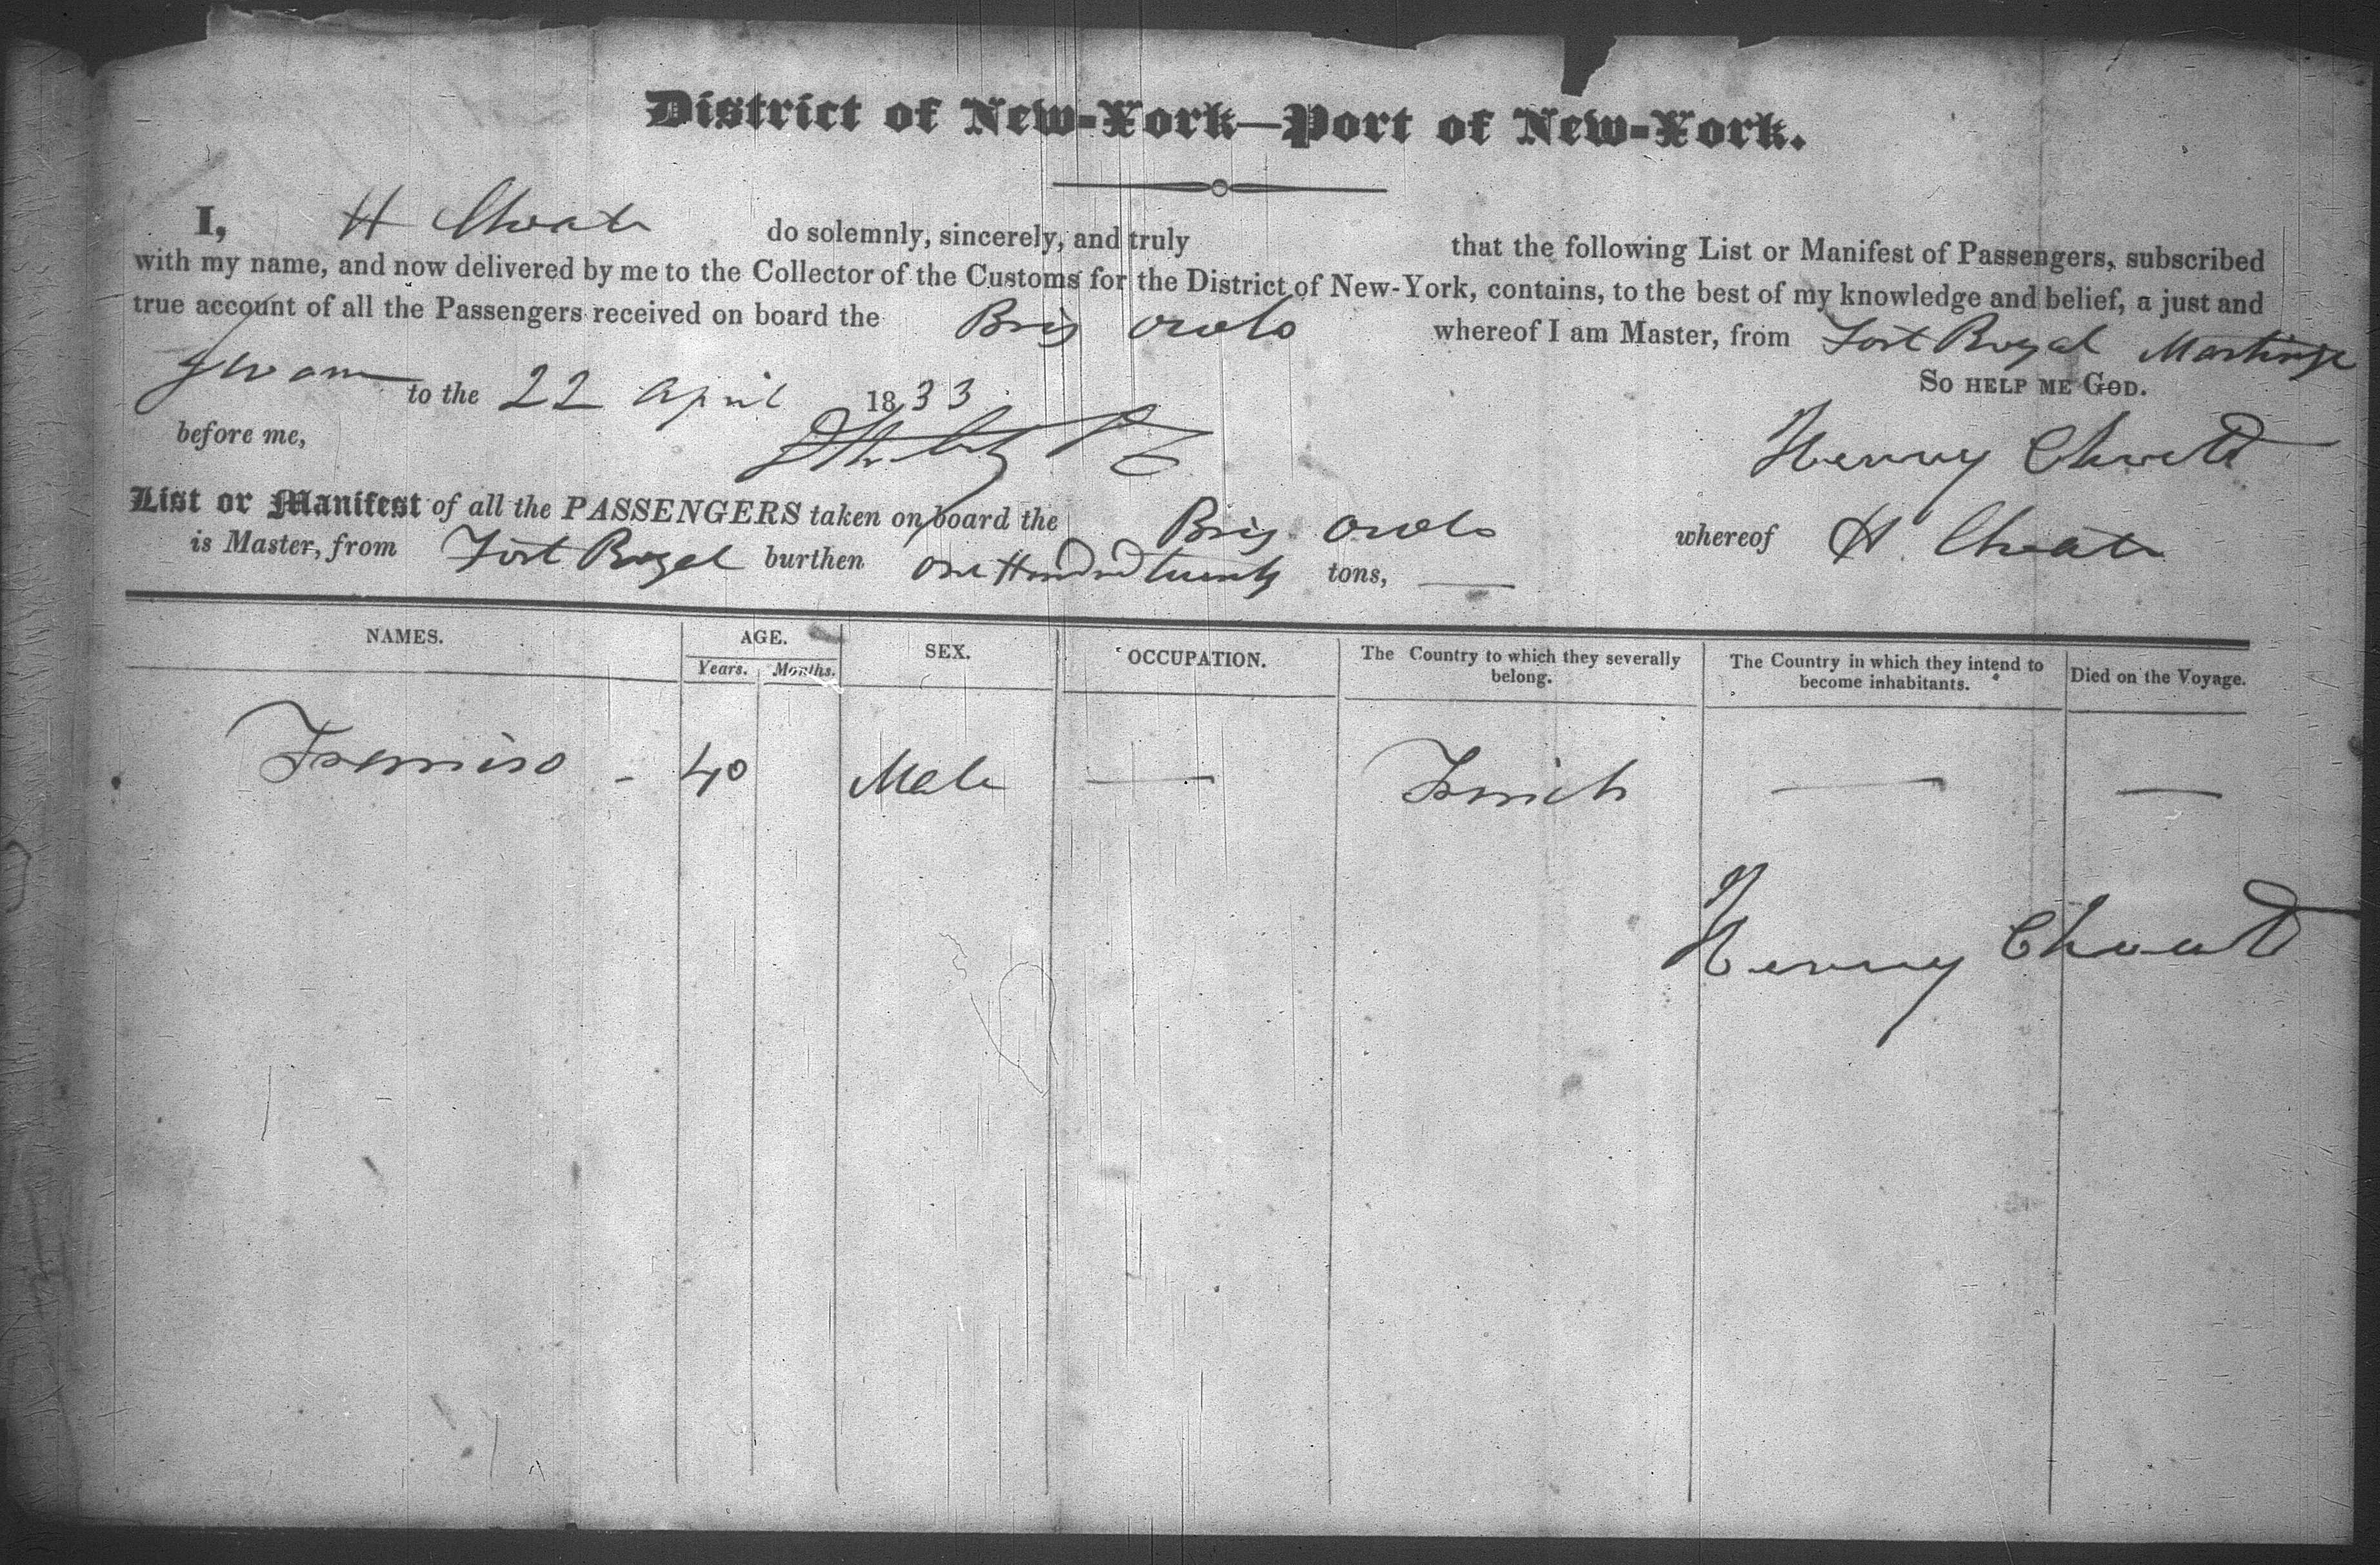 District of New-York—Port of New-York.
I, H Choate do solemnly, sincerely, and truly that the following List or Manifest of Passengers, subscribed
with my name, and now delivered by me to the Collector of the Customs for the District of New-York, contains, to the best of my knowledge and belief, a just and
true account of all the Passengers received on board the Brig whereof I am Master, from Fort Royal
Sworn to the 22 April 1833. So help me God.
before me, Henry Choate
List or Manifest of all the PASSENGERS taken on board the Brig whereof H. Choate
is Master, from Fort Royal burthen One Hundred twenty tons, —
NAMES. AGE. SEX. OCCUPATION. The Country to which they severally belong. The Country in which they intend to become inhabitants. Died on the Voyage.
Years. Months.
- 40 Male — French — —
Henry Choate